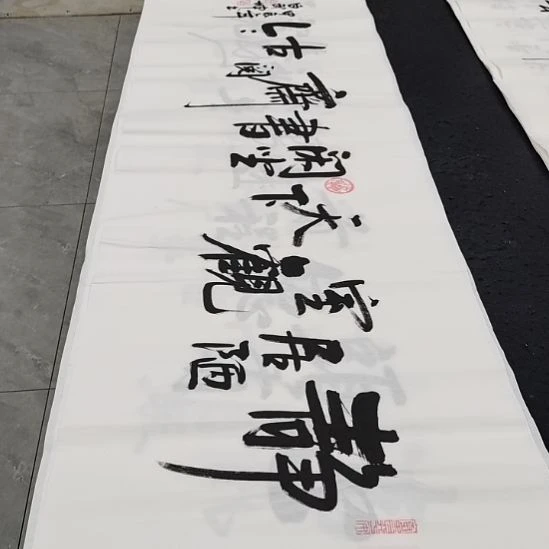 静
居陋
室觀
天下
閑坐
書
齋閱
古今